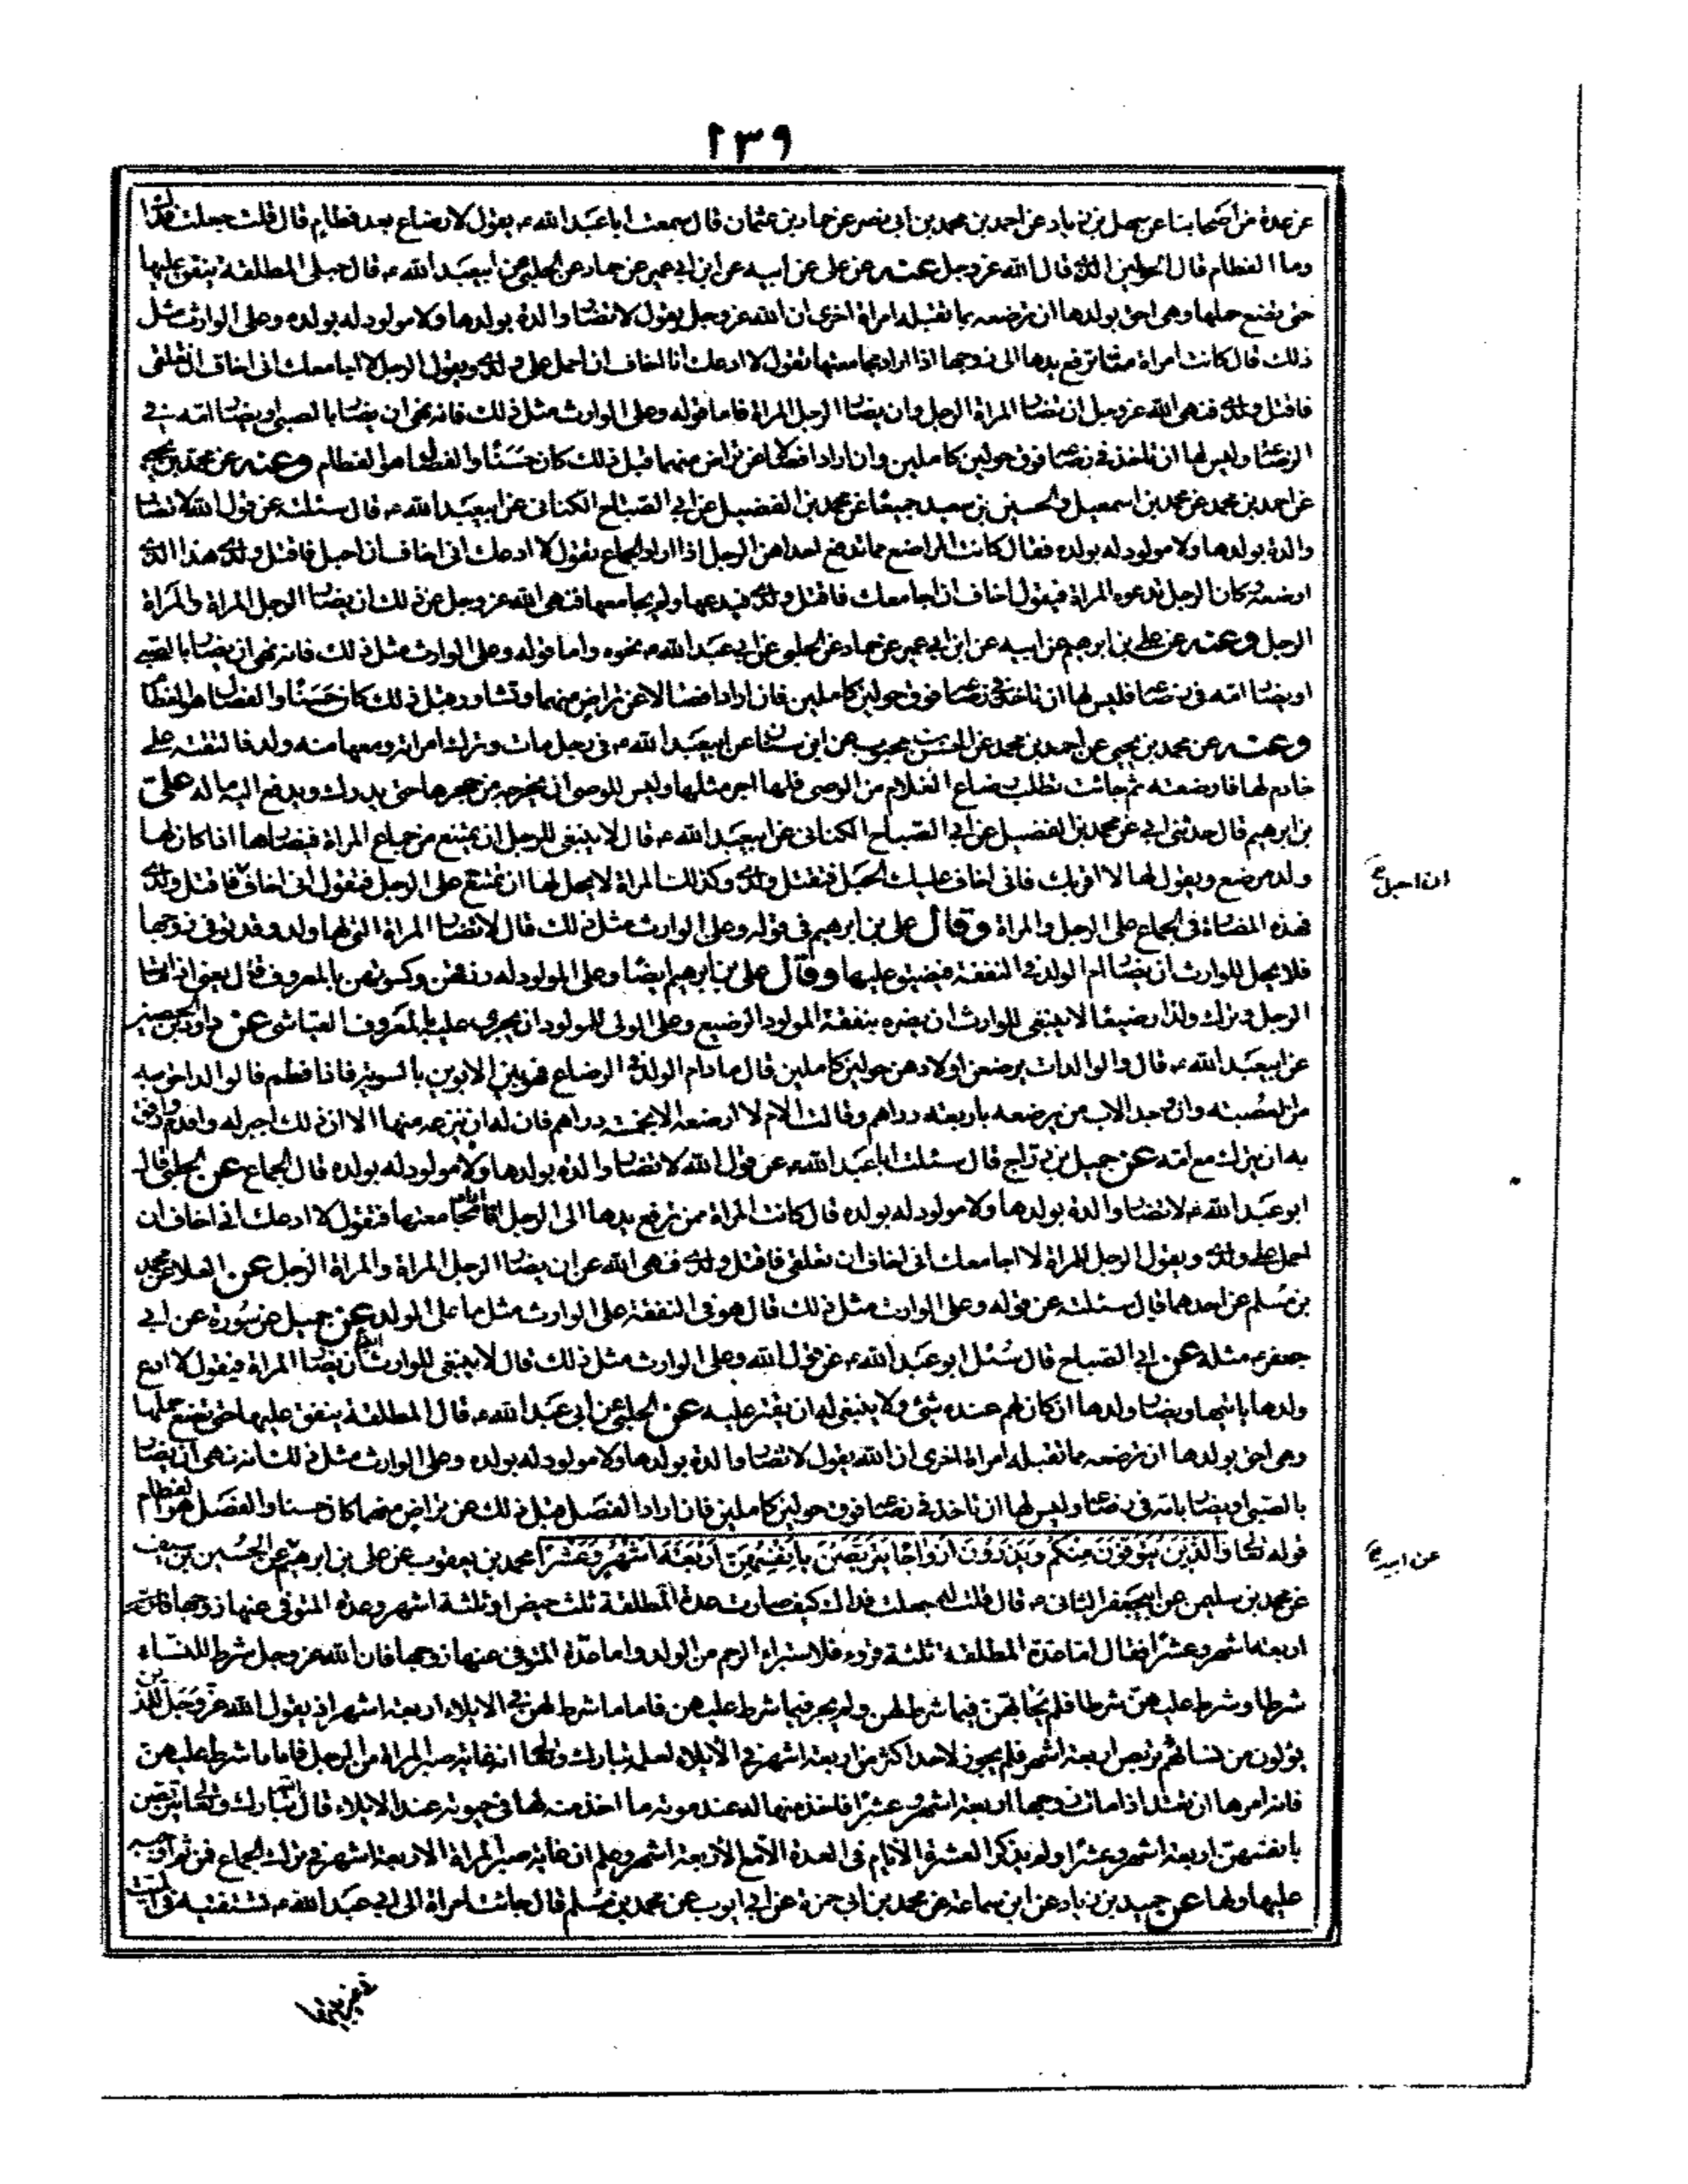 ١٣٩
عن عدة من أصحابنا عن سهل بن زياد عن احمد بن محمد بن أبي نصر عن حماد بن عثمان قال سمعت ابا عبد الله ء يقول لا رضاع بعد فطام قال قلت جعلت فداك
وما الفطام قال الحولين الذي قال الله عز وجل عنه عن علي عن ابيه عن ابن ابي عمير عن حماد عن الحلبي عن ابيعبد الله ء قال حبلى المطلقة ينفق عليها
حتى تضع حملها وهي احق بولدها ان ترضعه بما تقبله امراة اخرى ان الله عز وجل يقول لا تضار والدة بولدها ولا مولود له بولده وعلى الوارث مثل
ذلك قال كانت امراة منا ترفع يدها الى زوجها اذا اراد مجامعتها تقول لا ادعك انا اخاف ان احمل على ولدي ويقول الرجل لا اجامعك اني اخاف ان تعلقي
فاقتل ولدي فنهى الله عز وجل ان تضار المراة الرجل وان يضار الرجل المراة فاما قوله وعلى الوارث مثل ذلك فانه نهى ان يضار بالصبي او يضار امه في
الرضاع وليس لها ان تاخذ في رضاعه فوق حولين كاملين وان ارادا فصالا عن تراض منهما قبل ذلك كان حسنا والفصال هو الفطام وعنه عن محمد بن يحيى
عن احمد بن محمد عن محمد بن اسمعيل والحسين بن سعيد جميعا عن محمد بن الفضيل عن ابي الصباح الكناني عن ابيعبد الله ء قال سئلته عن قول الله لا تضار
والدة بولدها ولا مولود له بولده فقال كانت المراضع مما تدفع احداهن الرجل اذا اراد الجماع تقول لا ادعك اني اخاف ان احبل فاقتل ولدي هذا الذي
ارضعه وكان الرجل تدعوه المراة فيقول اخاف ان اجامعك فاقتل ولدي فيدعها ولم يجامعها فنهى الله عز وجل عن ذلك ان يضار الرجل المراة والمراة
الرجل وعنه عن علي بن ابرهيم عن ابيه عن ابن ابي عمير عن حماد عن الحلبي عن ابي عبد الله ء نحوه واما قوله وعلى الوارث مثل ذلك فانه نهى ان يضار بالصبي
او يضار امه في رضاعه فليس لها ان تاخذ في رضاعه فوق حولين كاملين فان ارادا فصالا عن تراض منهما وتشاور قبل ذلك كان حسنا والفصال هو الفطام
وعنه عن محمد بن يحيى عن احمد بن محمد عن الحسن بن محبوب عن ابن سنان عن ابيعبد الله ء في رجل مات وترك امراته ومعها منه ولد فالقته على
خادم لها فارضعته ثم جائت تطلب رضاع الغلام من الوصي فلها اجر مثلها وليس للوصي ان يخرجه من حجرها حتى يدرك ويدفع اليه ماله علي
بن ابرهيم قال حدثني ابي عن محمد بن الفضيل عن ابي الصباح الكناني عن ابيعبد الله ء قال لا ينبغي للرجل ان يمتنع من جماع المراة فيضارها اذا كان لها
ولد مرضع ويقول لها لا اقربك فاني اخاف عليك الحبل فتقتل ولدي وكذلك المراة لا يحل لها ان تمتنع على الرجل فتقول اني اخاف فاقتل ولدي
ان احبل
فهذه المضارة في الجماع على الرجل والمراة وقال علي بن ابرهيم في قوله وعلى الوارث مثل ذلك قال لا تضار المراة التي لها ولد وقد توفي زوجها
فلا يحل للوارث ان يضار ام الولد في النفقة فيضيق عليها وقال علي بن ابرهيم ايضا وعلى المولود له رزقهن وكسوتهن بالمعروف قال يعني اذا مات
الرجل وترك ولدا رضيعا لا ينبغي للوارث ان يضره بنفقة المولود الرضيع وعلى الولي للمولود ان يجري عليه بالمعروف العياشي عن داود بن الحصين
عن ابيعبد الله ء قال والوالدات يرضعن اولادهن حولين كاملين قال ما دام الولد في الرضاع فهو بين الابوين بالسوية فاذا فطم فالوالد احق به
من العصبة وان وجد الاب من يرضعه باربعة دراهم وقالت الام لا ارضعه الا بخمسة دراهم فان له ان ينزعه منها الا ان ذلك اجبر له واقدم وارفق
به ان يترك مع امه عن جميل بن دراج قال سئلت ابا عبد الله ء عن قول الله لا تضار والدة بولدها ولا مولود له بولده قال الجماع عن الحلبي قال
ابو عبد الله ء لا تضار والدة بولدها ولا مولود له بولده قال كانت المراة ممن ترفع يدها الى الرجل اذا اراد مجامعتها فتقول لا ادعك اني اخاف ان
احمل على ولدي ويقول الرجل للمراة لا اجامعك اني اخاف ان تعلقي فاقتل ولدي فنهى الله عن ان يضار الرجل المراة والمراة الرجل عن العلا عن محمد
بن مسلم عن احدهما قال سئلته عن قوله وعلى الوارث مثل ذلك قال هو في النفقة على الوارث مثل ما على الوالد عن جميل عن سورة عن ابي
جعفر ء مثله عن ابي الصباح قال سئل ابو عبد الله ء عن قول الله وعلى الوارث مثل ذلك قال لا ينبغي للوارث ايضا ان يضار المراة فيقول لا ادع
ولدها ياتيها ويضار ولدها ان كان لهم عنده شئ ولا ينبغي له ان يقتر عليه عن الحلبي عن ابي عبد الله ء قال المطلقة ينفق عليها حتى تضع حملها
وهي احق بولدها ان ترضعه مما تقبله امراة اخرى ان الله يقول لا تضار والدة بولدها ولا مولود له بولده وعلى الوارث مثل ذلك انه نهى ان يضار
بالصبي او يضار بامه في رضاعه وليس لها ان تاخذ في رضاعه فوق حولين كاملين فان ارادا الفصل قبل ذلك عن تراض منهما كان حسنا والفصل هو الفطام
قوله تعالى والذين يتوفون منكم ويذرون ازواجا يتربصن بانفسهن اربعة اشهر وعشرا محمد بن يعقوب عن علي بن ابرهيم عن الحسين بن سيف
عن ابيه
عن محمد بن سليمن عن ابيجعفر الثاني ء قال قلت له جعلت فداك كيف صارت عدة المطلقة ثلث حيض او ثلثة اشهر وعدة المتوفى عنها زوجها
اربعة اشهر وعشرا فقال اما عدة المطلقة ثلثة قروء فلاستبراء الرحم من الولد واما عدة المتوفى عنها زوجها فان الله عز وجل شرط للنساء
شرطا وشرط عليهن شرطا فلم يحابهن فيما شرط لهن ولم يجر فيما شرط عليهن فاما ما شرط لهن في الايلاء اربعة اشهر اذ يقول الله عز وجل للذين
يؤلون من نسائهم تربص اربعة اشهر فلم يجوز لاحد اكثر من اربعة اشهر في الايلاء لعلمه تبارك وتعالى انه غاية صبر المراة من الرجل فاما ما شرط عليهن
فانه امرها ان تعتد اذا مات زوجها اربعة اشهر وعشرا فاخذ منها له عند موته ما اخذ منه لها في حيوته عند الايلاء قال الله تبارك وتعالى يتربصن
بانفسهن اربعة اشهر وعشرا ولم يذكر العشرة الايام في العدة الا مع الاربعة اشهر وعلم ان غاية صبر المراة الاربعة اشهر في ترك الجماع فمن ثم اوجبه
عليها ولها عن حميد بن زياد عن ابن سماعة عن محمد بن ابي حمزة عن ابي ايوب عن محمد بن مسلم قال جائت امراة الى ابي عبد الله ء تستفتيه في المبيت